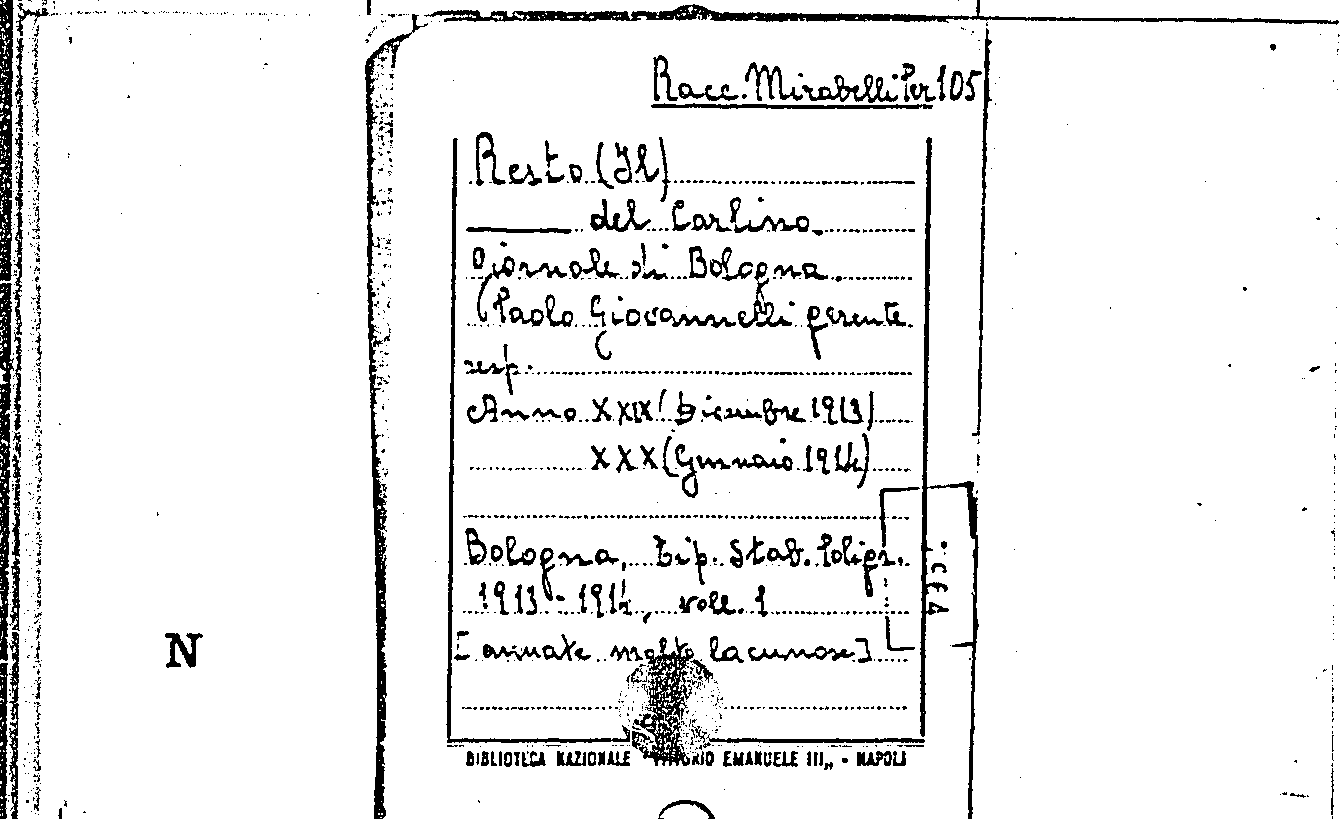 Racc. Mirabelli Per 105
Resto (Il)
del Carlino.
Giornale di Bologna.
(Paolo Giovannelli gerente
resp.
Anno XXIX (Dicembre 1913)
XXX (Gennaio 1914)
Bologna, Tip. Stab. Poligr.
1913-1914, voll. 1
[annate molto lacunose]
BIBLIOTECA NAZIONALE "VITTORIO EMANUELE III„ - NAPOLI
N